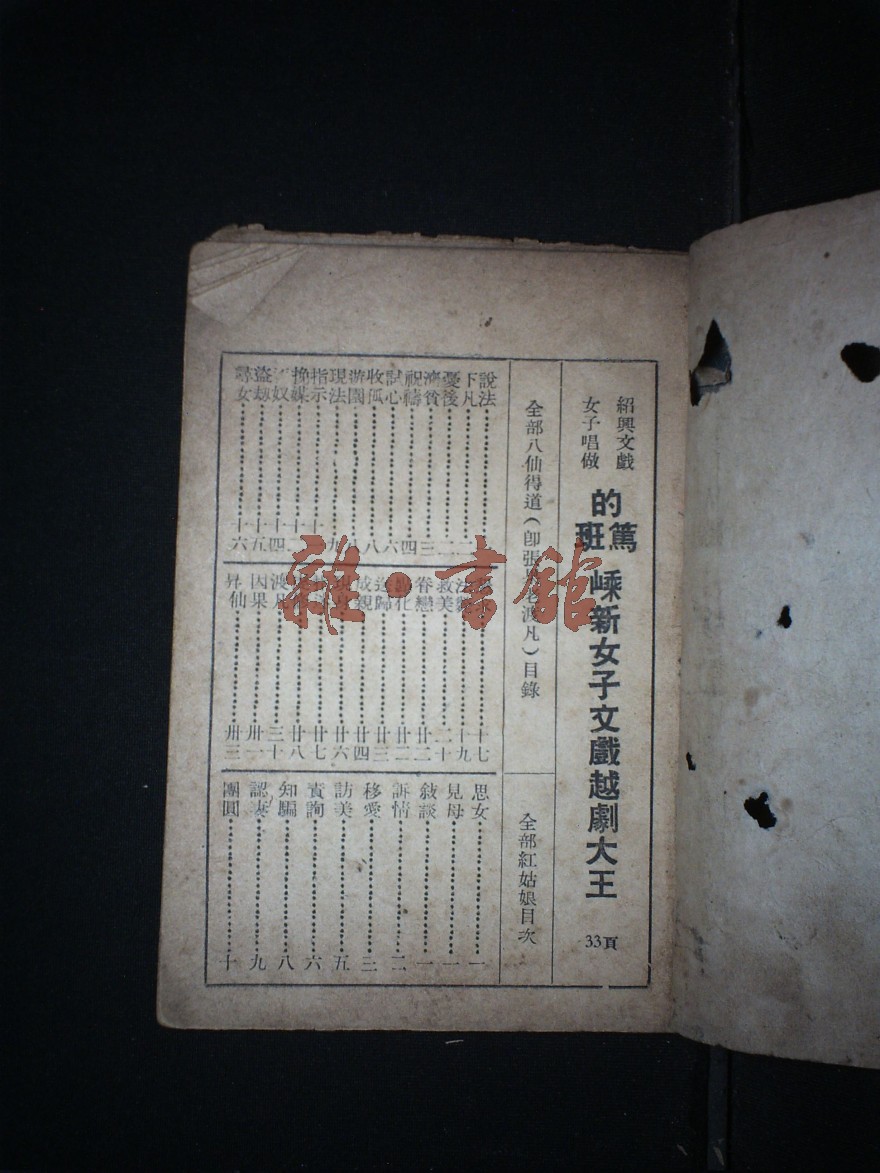 紹興文戲
女子唱做
的篤班
嵊新女子文戲越劇大王
33頁
全部八仙得道（卽張 渡凡）目錄
全部紅姑娘目次
說法
下凡 二
憂後 二
濟貧 三
祝禱 四
試心 六
收狐 八
游園 八
現法 九
指示 十
換媒 十
奴 十四
盜刼 十五
尋女 十六
十七
法 十九
救美 二十
眷戀 廿二
化 廿二
歸 廿三
成親 廿四
現身 廿六
廿七
廿八
渡凡 三十
因果 卅一
昇仙 卅三
思女 一
見母 一
敍談 一
訴情 二
移愛 三
訪美 五
責詢 六
知騙 八
認妻 九
團圓 十
雜·書館